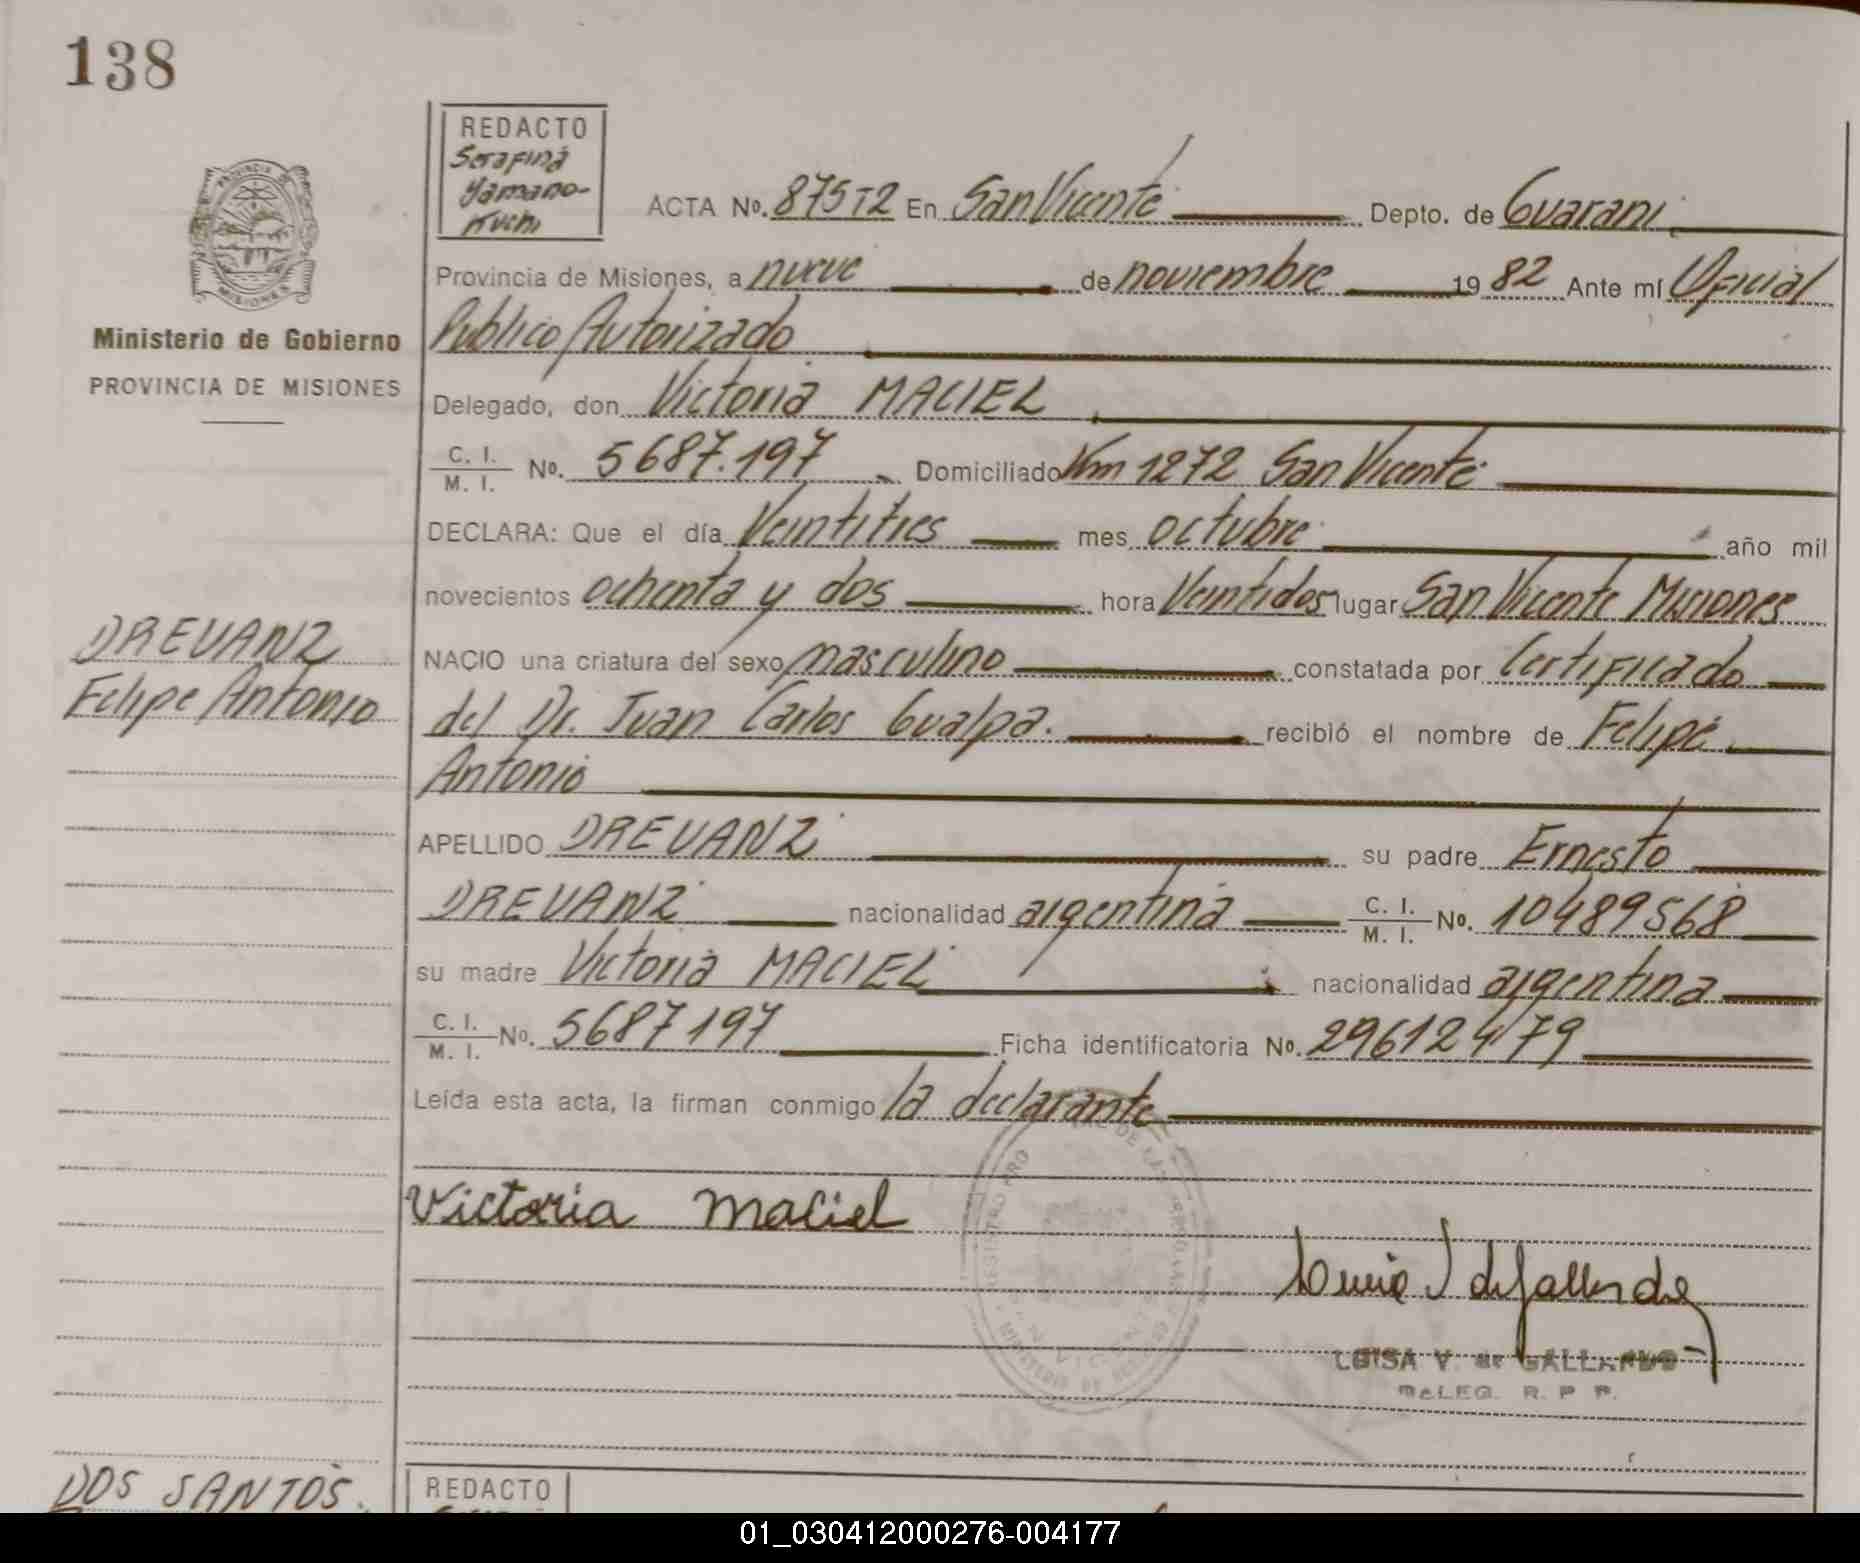 138
REDACTO
Serafina
Yamano-
kuchi
ACTA No. 875T2 En San Vicente Depto. de Guarani
Provincia de Misiones, a nueve de noviembre 19 82 Ante mí Oficial
Publico Autorizado
Ministerio de Gobierno
PROVINCIA DE MISIONES
Delegado, don Victoria MACIEL
C. I.
M. I. No. 5687.197 Domiciliado Km 1272 San Vicente
DECLARA: Que el día Veintitres mes octubre año mil
novecientos ochenta y dos hora Veintidos lugar San Vicente Misiones
DREVANZ
Felipe Antonio
NACIO una criatura del sexo masculino constatada por Certificado
del Dr. Juan Carlos Gualpa. recibió el nombre de Felipe
Antonio
APELLIDO DREVANZ su padre Ernesto
DREVANZ nacionalidad argentina C. I.
M. I. No. 10489568
su madre Victoria MACIEL nacionalidad argentina
C. I.
M. I. No. 5687197 Ficha identificatoria No. 29612479
Leída esta acta, la firman conmigo la declarante
Victoria Maciel
LUISA V. de GALLARDO
DELEG. R. P. P.
DOS SANTOS.
REDACTO
01_030412000276-004177